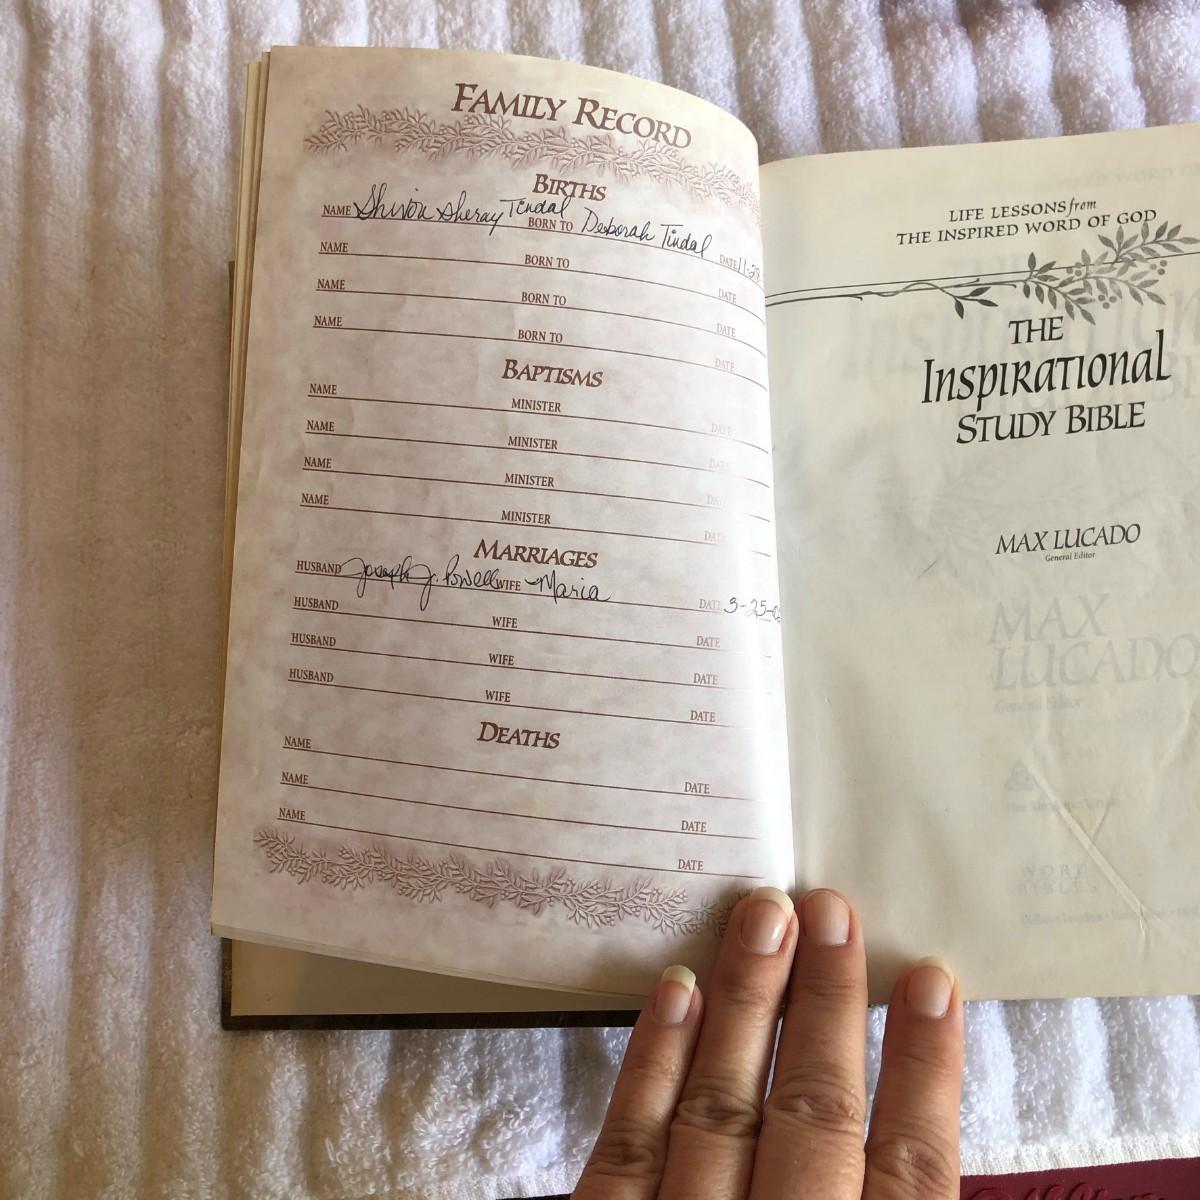 FAMILY RECORD
BIRTHS
NAME Shivon Sheray Tindal BORN TO Deborah Tindal DATE 11-28
NAME BORN TO DATE
NAME BORN TO DATE
NAME BORN TO DATE
BAPTISMS
NAME MINISTER DATE
NAME MINISTER DATE
NAME MINISTER DATE
NAME MINISTER DATE
MARRIAGES
HUSBAND Joseph J. Powell WIFE Maria DATE 3-25-0
HUSBAND WIFE DATE
HUSBAND WIFE DATE
HUSBAND WIFE DATE
DEATHS
NAME DATE
NAME DATE
NAME DATE
LIFE LESSONS from
THE INSPIRED WORD OF GOD
THE
Inspirational
STUDY BIBLE
MAX LUCADO
General Editor
MAX
LUCADO
General Editor
WORD
BIBLES